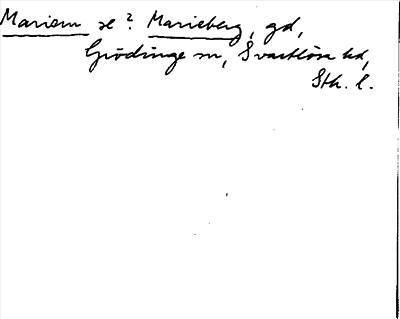 Mariem se? Marieberg, gd,
Grödinge sn, Svartlösa hd,
Sth. l.